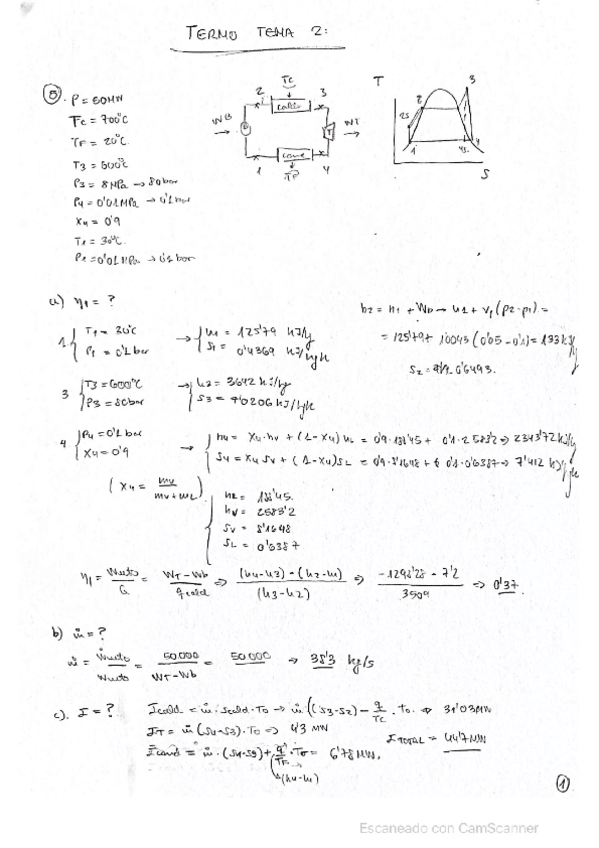 TERMO TEMA 2:
8. P = 50MW
Tc = 700°C
TF = 20°C
T3 = 600°C
P3 = 8 MPa → 80 bar
P4 = 0'01 MPa → 0'1 bar
X4 = 0'9
T1 = 30°C
P1 = 0'01 MPa → 0'1 bar
Tc
2 3
WB WT
1 4
TF
T
3
2
2s
1 4s 4
S
a) η1 = ?
1 { T1 = 30°C → { h1 = 125'79 kJ/kg
P1 = 0'1 bar S1 = 0'4369 kJ/kgK
h2 = h1 + Wb → h1 + v1 (p2-p1) =
= 125'79 +
= 133 kJ/kg
S2 =
3 { T3 = 600°C → { h3 = 3642 kJ/kg
P3 = 80 bar S3 = 7'0206 kJ/kgK
4 { P4 = 0'1 bar
X4 = 0'9
→ { h4 = X4·hv + (1-X4) hL = 0'9· + 0'1·2583'2 → 2343'72 kJ/kg
S4 = X4 Sv + (1-X4) SL = 0'9·8'1648 + 0'1·0'6387 → 7'412 kJ/kgK
(X4 = mv / mv+mL)
hv = 2583'2
Sv = 8'1648
SL = 0'6387
η1 = Wneto / Q = WT - Wb / qcald ⇒ (h4-h3) - (h2-h1) / (h3-h2) ⇒ -1298'28 - 7'2 / 3509 ⇒ 0'37
b) ṁ = ?
ṁ = Ẇneto / Wneto = 50.000 / WT - Wb = 50.000 → 38'3 kg/s
c). I = ?
Icald = ṁ · Scald · T0 → ṁ ((S3-S2) - q/Tc · T0 ⇒ 31'03 MW
IT = ṁ (S4-S3) · T0 ⇒ 4'3 MW
Icond = ṁ · + q/TF · T0 = 6'78 MW.
(h4-h1)
ITOTAL = 44'7 MW
1
Escaneado con CamScanner